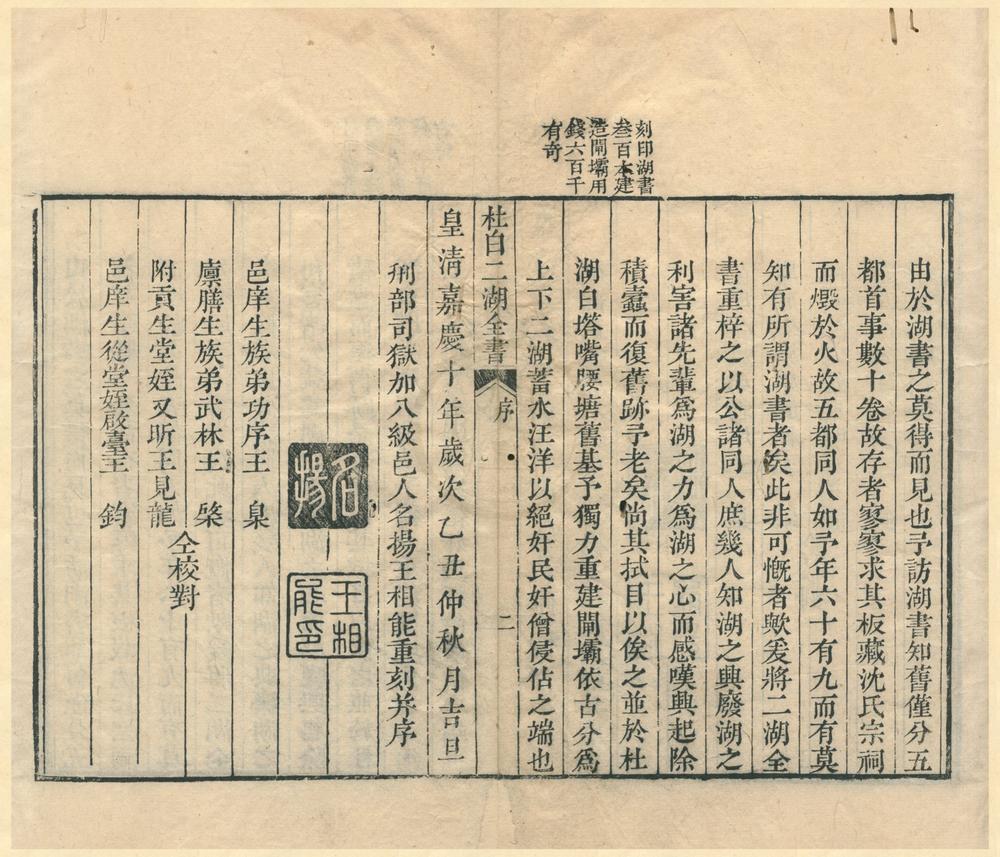 刻印湖書
叁百本建
造閘壩用
錢六百千
有奇
由於湖書之莫得而見也予訪湖書知舊僅分五
都首事數十卷故存者寥寥求其板藏沈氏宗祠
而燬於火故五都同人如予年六十有九而有莫
知有所謂湖書者矣此非可慨者歟爰將二湖全
書重梓之以公諸同人庶幾人知湖之興廢湖之
利害諸先輩為湖之力為湖之心而感嘆興起除
積蠹而復舊跡予老矣尚其拭目以俟之並於杜
湖白塔嘴腰塘舊基予獨力重建閘壩依古分為
上下二湖蓄水汪洋以絕奸民奸僧侵佔之端也
杜白二湖全書 序 二
皇清嘉慶十年歲次乙丑仲秋月吉旦
刑部司獄加八級邑人名揚王相能重刻并序
名揚
王相能印
邑庠生族弟功序王 臬
廩膳生族弟武林王 棨
附貢生堂姪又昕王見龍
邑庠生從堂姪啟臺王 鈞
仝校對